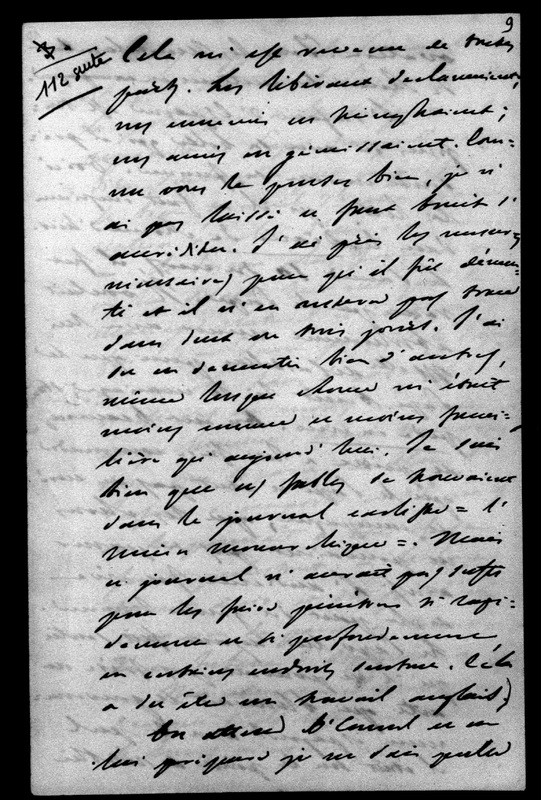 9
112 suite
Cela m'est revenu de toutes
parts. Les libéraux declamaient,
nos ennemis en triomphaient ;
nos amis en gémissaient. Com-
me vous le pensez bien, je n'
ai pas laissé ce faux bruit s'
accréditer. J'ai pris les mesures
nécessaires pour qu'il fût démen-
ti et il n'en restera pas trace
dans deux ou trois jours. J'ai
su en démentir bien d'autres,
même lorsque Rome m'était
moins connue et moins fami-
lière qu'aujourd'hui. Je sais
bien que ces fables se trouvaient
dans le journal carliste = l'
Union monarchique =. Mais
ce journal n'aurait pas suffi
pour les faire pénétrer si rapi-
dement et si profondément
en certains endroits surtout. Cela
a du être un travail anglais)
On attend O'Connel et on
lui prépare je ne sais quelle